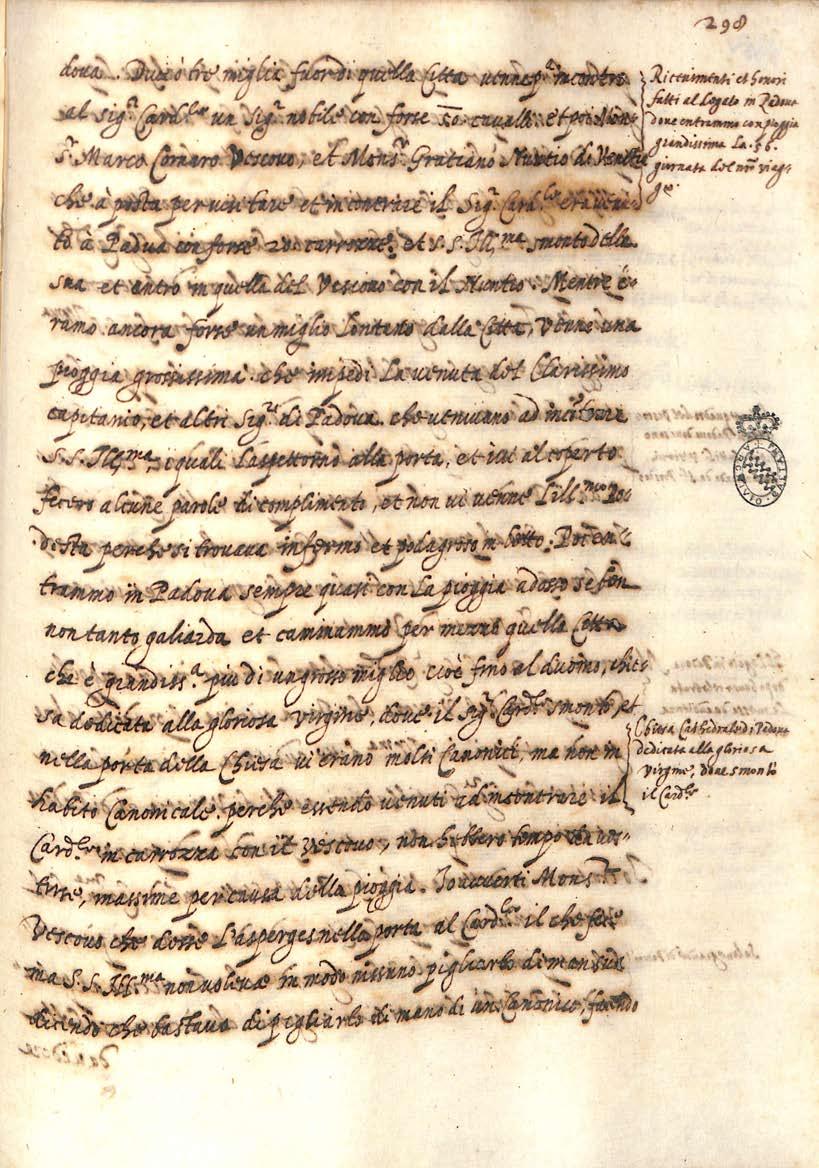 298
dova. Due ò tre miglia fuor di quella Città venne p.ª incontro
al sig.r Card.le un sig.r nobile con forse 50 cavalli: et poi Mon-
s.r Marco Cornaro Vescovo, et Mons.r Gratiano Nuntio di Venetia
che à posta per visitare et incontrare il Sig.r Card.le era venu-
to à Padua con forse 20 carrozze, et S. S. Ill.ma smontò della
sua et entrò in quella del Vescovo con il Nuntio. Mentre é-
ramo ancora forse un miglio lontano dalla Città, venne una
pioggia grossissima che impedì la venuta del Clarissimo
capitanio, et altri Sig.ri di Padova che venivano ad incontrare
S. S. Ill.ma, i quali l'aspettorno alla porta, et ivi al coperto
fecero alcune parole di complimento, et non vi venne l'ill.mo Po-
destà perche si trovava infermo et podagroso in letto. Poi en-
trammo in Padova sempre quasi con la pioggia adosso se ben
non tanto galiarda et caminammo per mezzo quella Città
che è grandiss.ª più di un grosso miglio cioè fino al duomo, chie-
sa dedicata alla gloriosa Virgine, dove il sig.r Card.le smontò, et
nella porta della Chiesa vi erano molti Canonici, ma non in
habito Canonicale perche essendo venuti ad incontrare il
Card.le in carrozza con il Vescovo, non hebbero tempo da ves-
tirse, massime per causa della pioggia. Io avverti Mons.r
Vescovo che desse l'asperges nella porta al Card.le il che fece
ma S. S. Ill.ma non voleva in modo nissuno pigliarlo di man sua
dicendo che bastava di pigliarlo di mano di un Canonico, facendo
Ricevimenti et honori
fatti al Legato in Padova
dove entrammo con pioggia
grandissima La .56.
giornata del nro viag-
gio.
Chiesa Cathedrale di Padova
dedicata alla gloriosa
Virgine, dove smontò
il Card.le